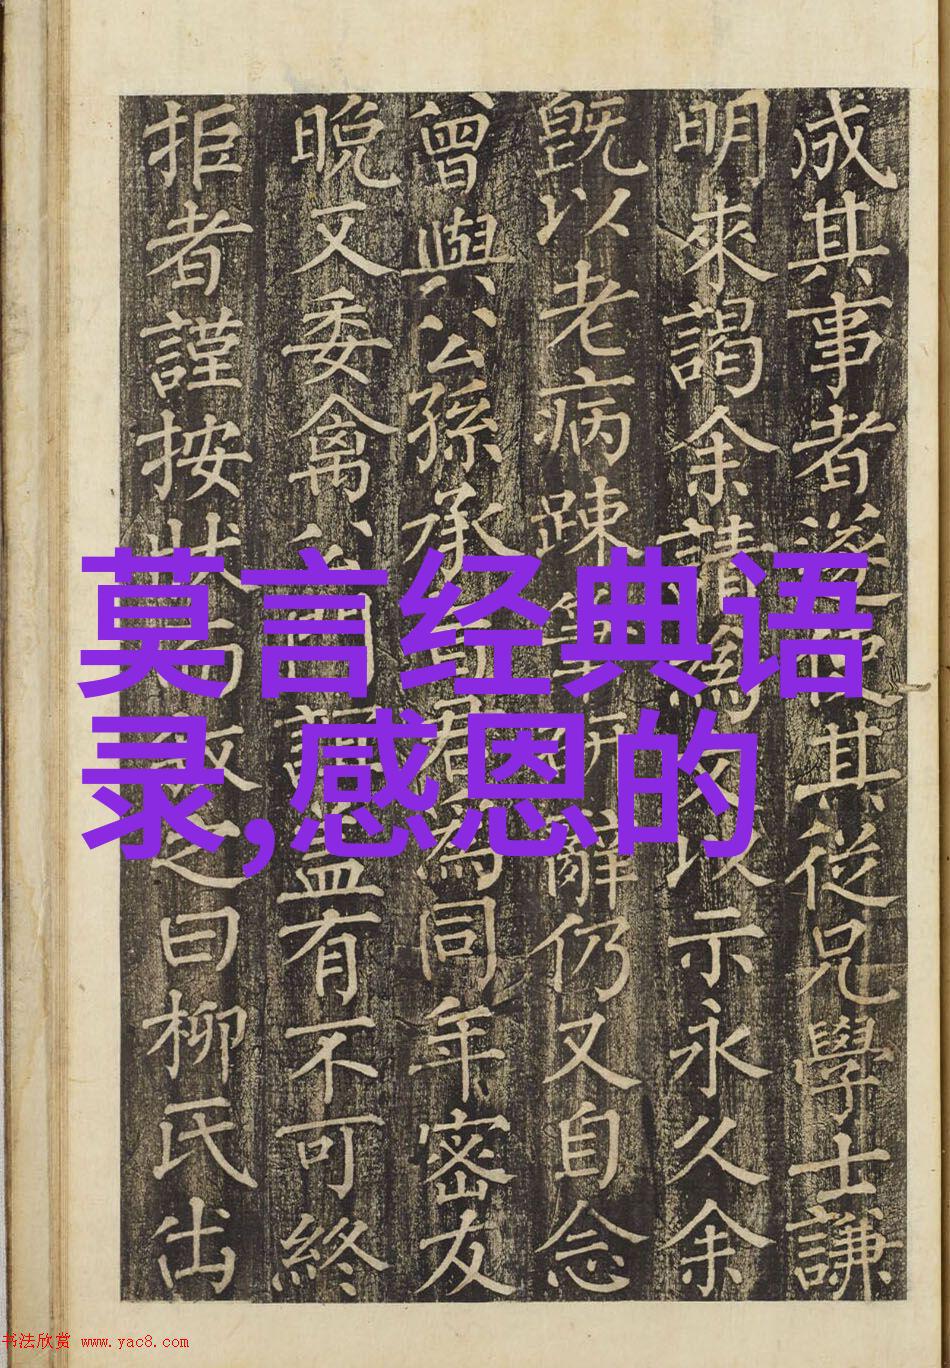 莫言经典语
录,感恩的
成其事者遂使其從兄學士謙
明來謁余請為文以示永久余
旣以老病踈筆研辭仍又自念
曾與公孫承旨君為同年密友
晚又委禽有不可終
拒者謹按狀之曰柳氏出
书法欣赏 www.yac8.com